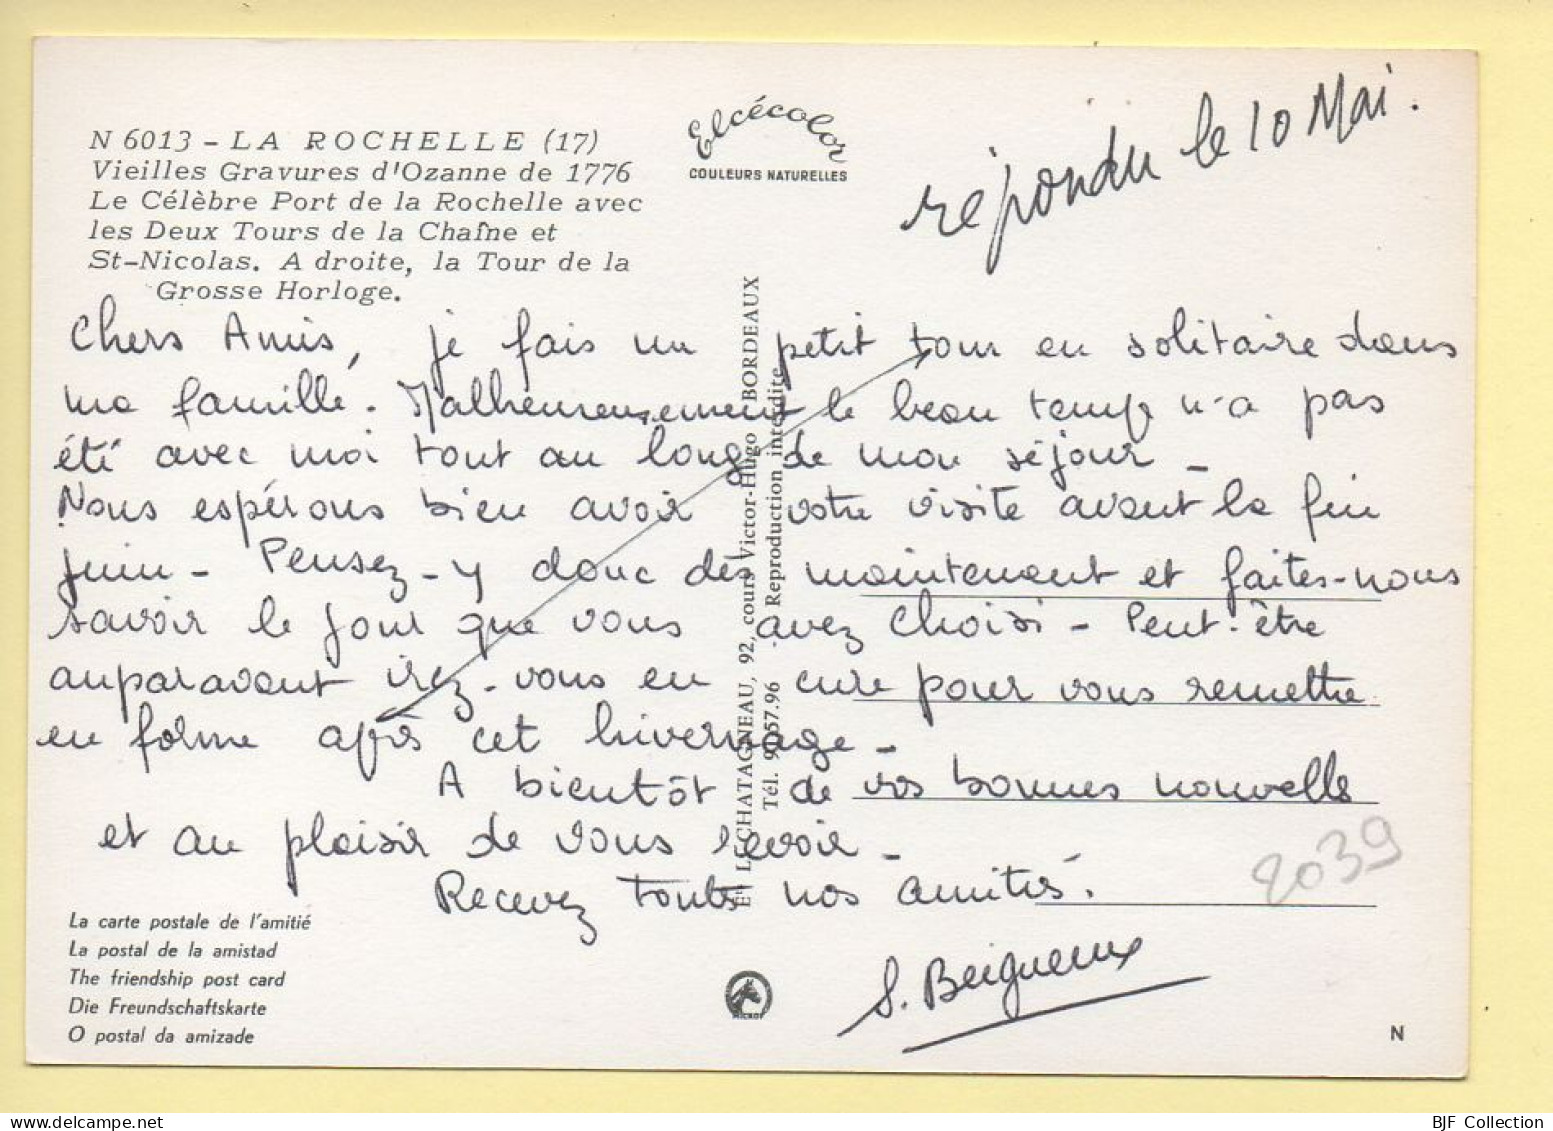 N 6013 - LA ROCHELLE (17)
Vieilles Gravures d'Ozanne de 1776
Le Célèbre Port de la Rochelle avec
les Deux Tours de la Chaîne et
St-Nicolas. A droite, la Tour de la
Grosse Horloge.
Elcécolor
COULEURS NATURELLES
répondu le 10 Mai.
Chers Amis, je fais un petit tour en solitaire dans
ma famille. Malheureusement le beau temps n'a pas
été avec moi tout au long de mon séjour -
Nous espérons bien avoir votre visite avant la fin
juin - Pensez-y donc dès maintenant et faites-nous
savoir le jour que vous avez choisi - Peut-être
auparavant irez-vous en cure pour vous remettre
en forme après cet hivernage -
A bientôt de vos bonnes nouvelles
et au plaisir de vous revoir -
Recevez toutes nos amitiés.
S. Beigneux
2039
Ets LECHATAGNEAU, 92, cours Victor-Hugo BORDEAUX
Tél. 92.57.96 - Reproduction interdite
La carte postale de l'amitié
La postal de la amistad
The friendship post card
Die Freundschaftskarte
O postal da amizade
N
BJF Collection